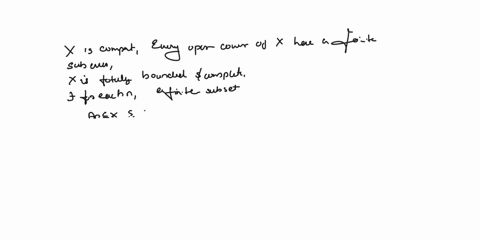 X is compat, Every open cover of X have a finite
sub cover,
X is totally bounded & complete.
∃ for each n, a finite subset
An ⊆ X s.